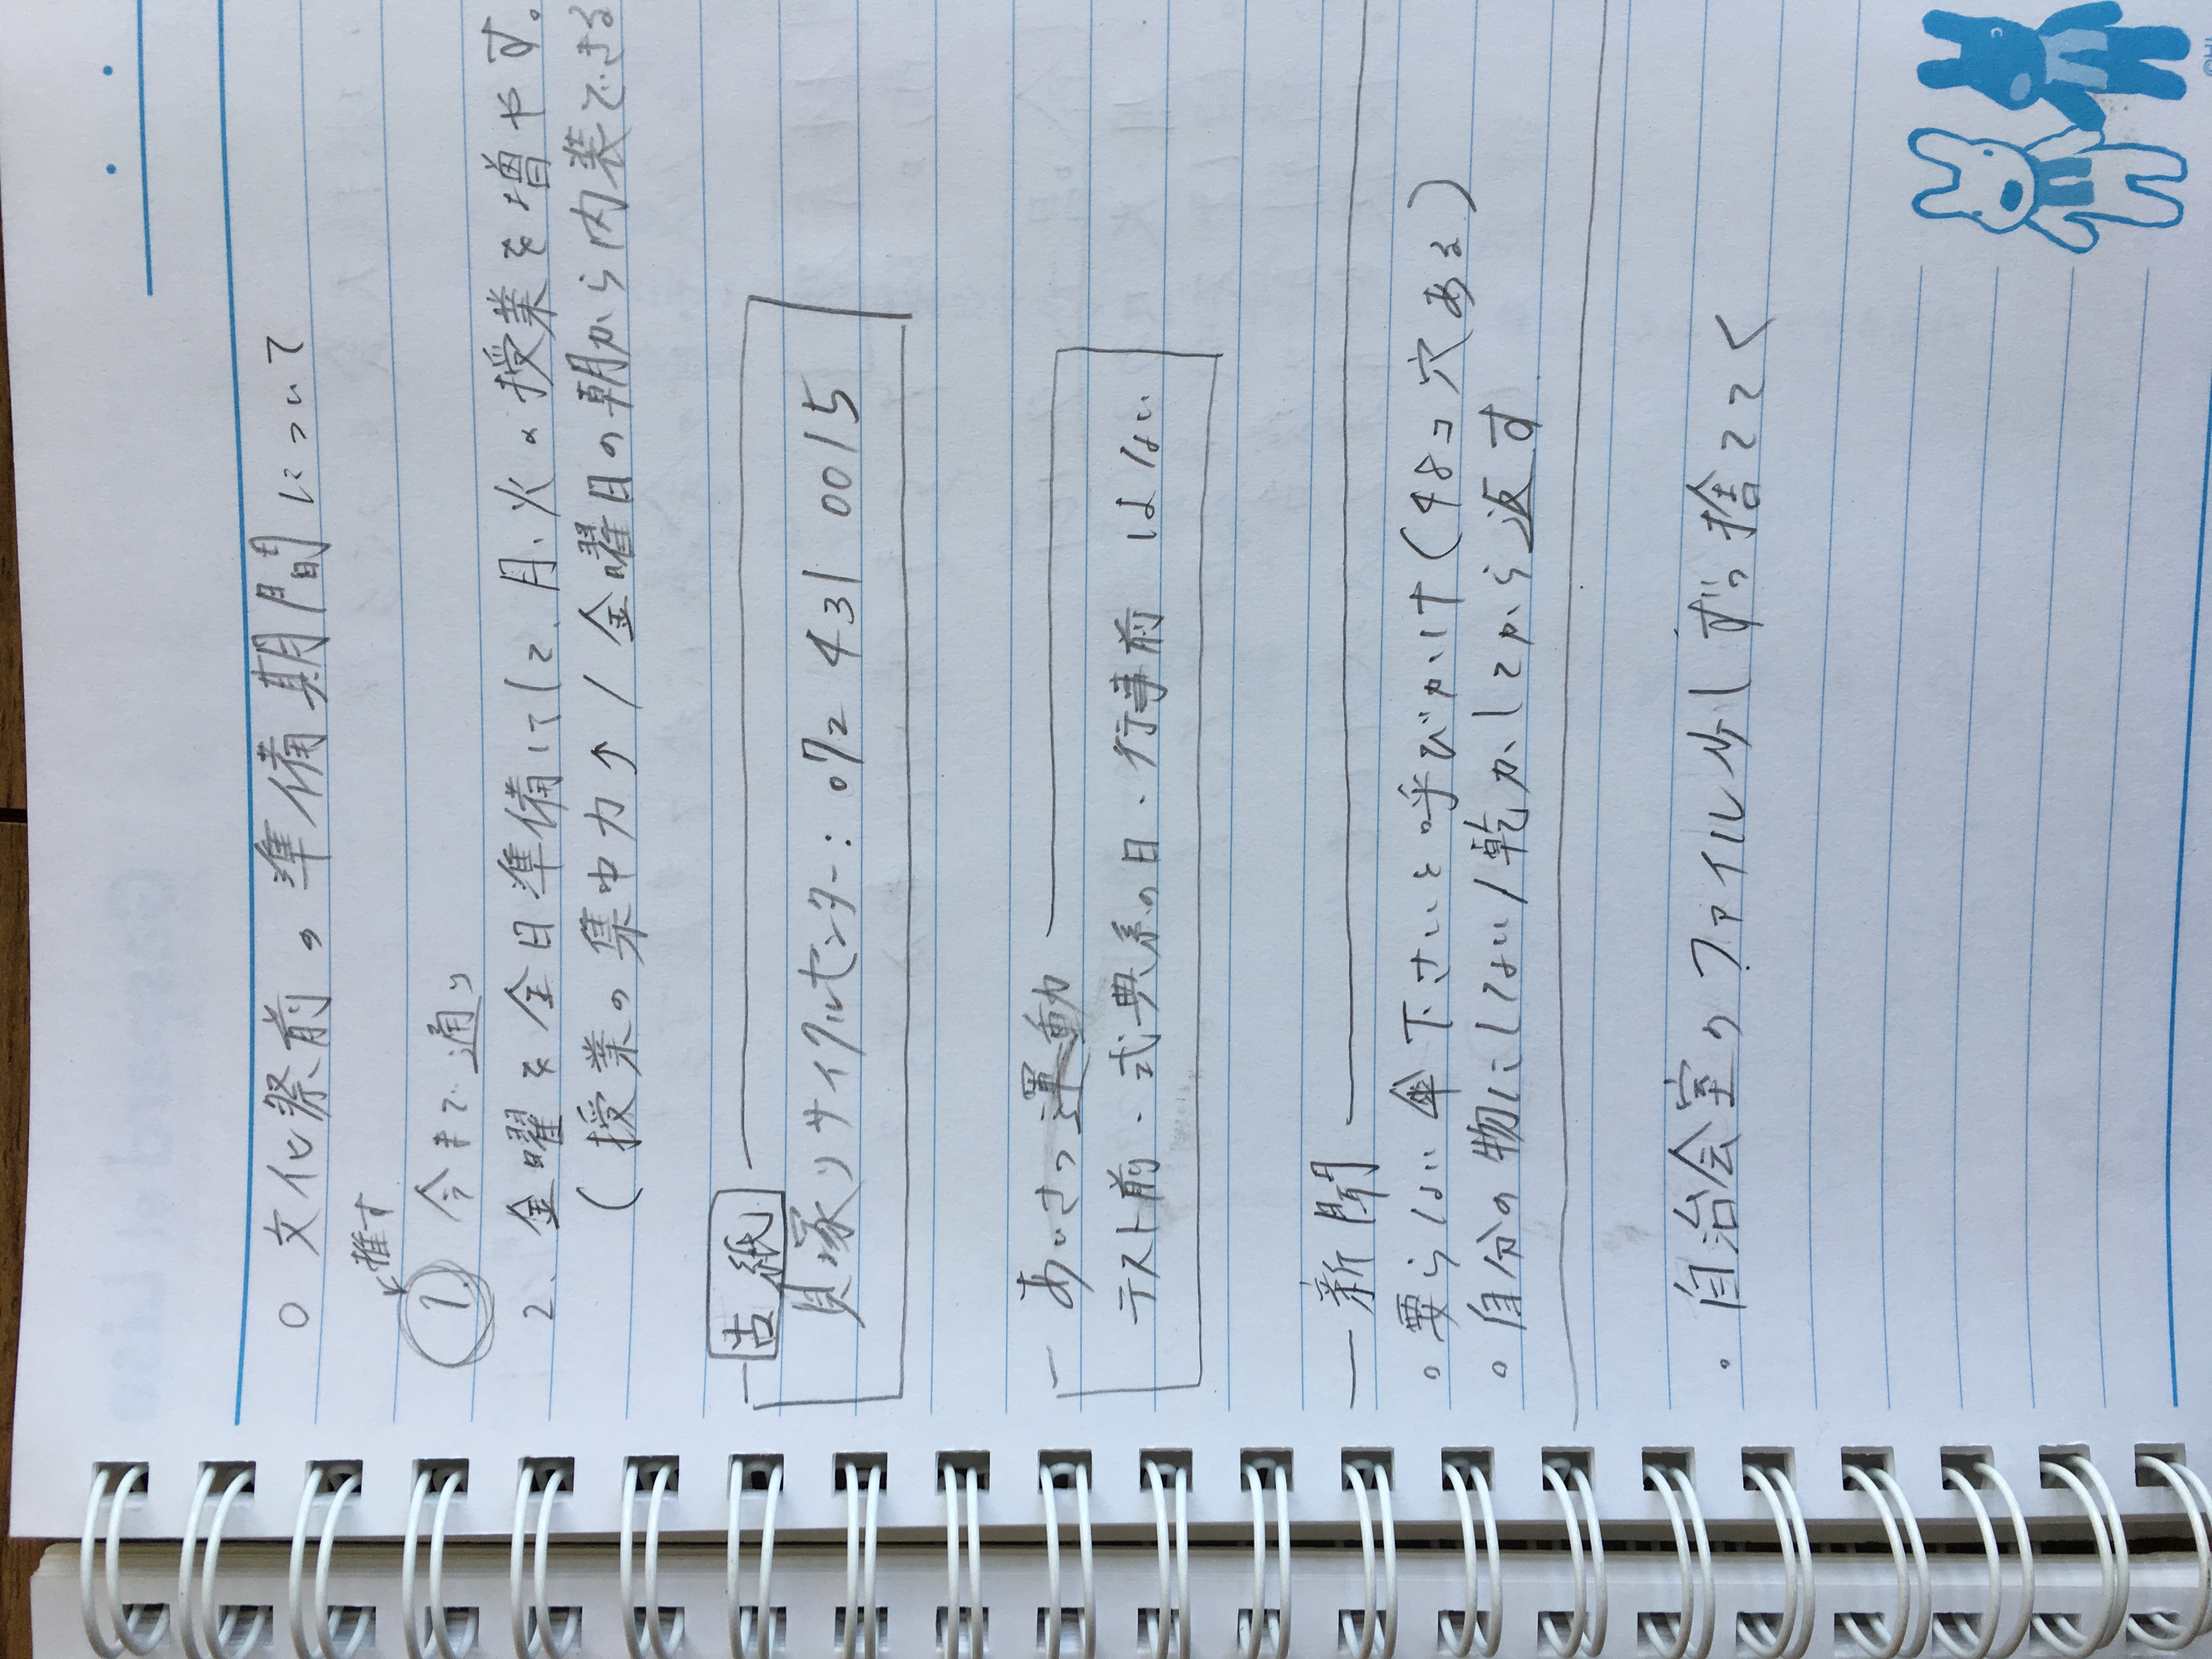 ○ 文化祭前の準備期間について
推す
1. 今まで通り
2. 金曜を全日準備にして、月、火の授業を増やす。
(授業の集中力↑/金曜日の朝から内装できる
古紙
貝塚リサイクルセンター: 072 431 0015
あいさつ運動
テスト前・式典系の日・行事前 はない
新聞
○要らない傘下さいと呼びかけ(48コ穴ある)
○自分の物にしない/乾かしてから返す
・自治会室のファイル少しずつ捨ててく